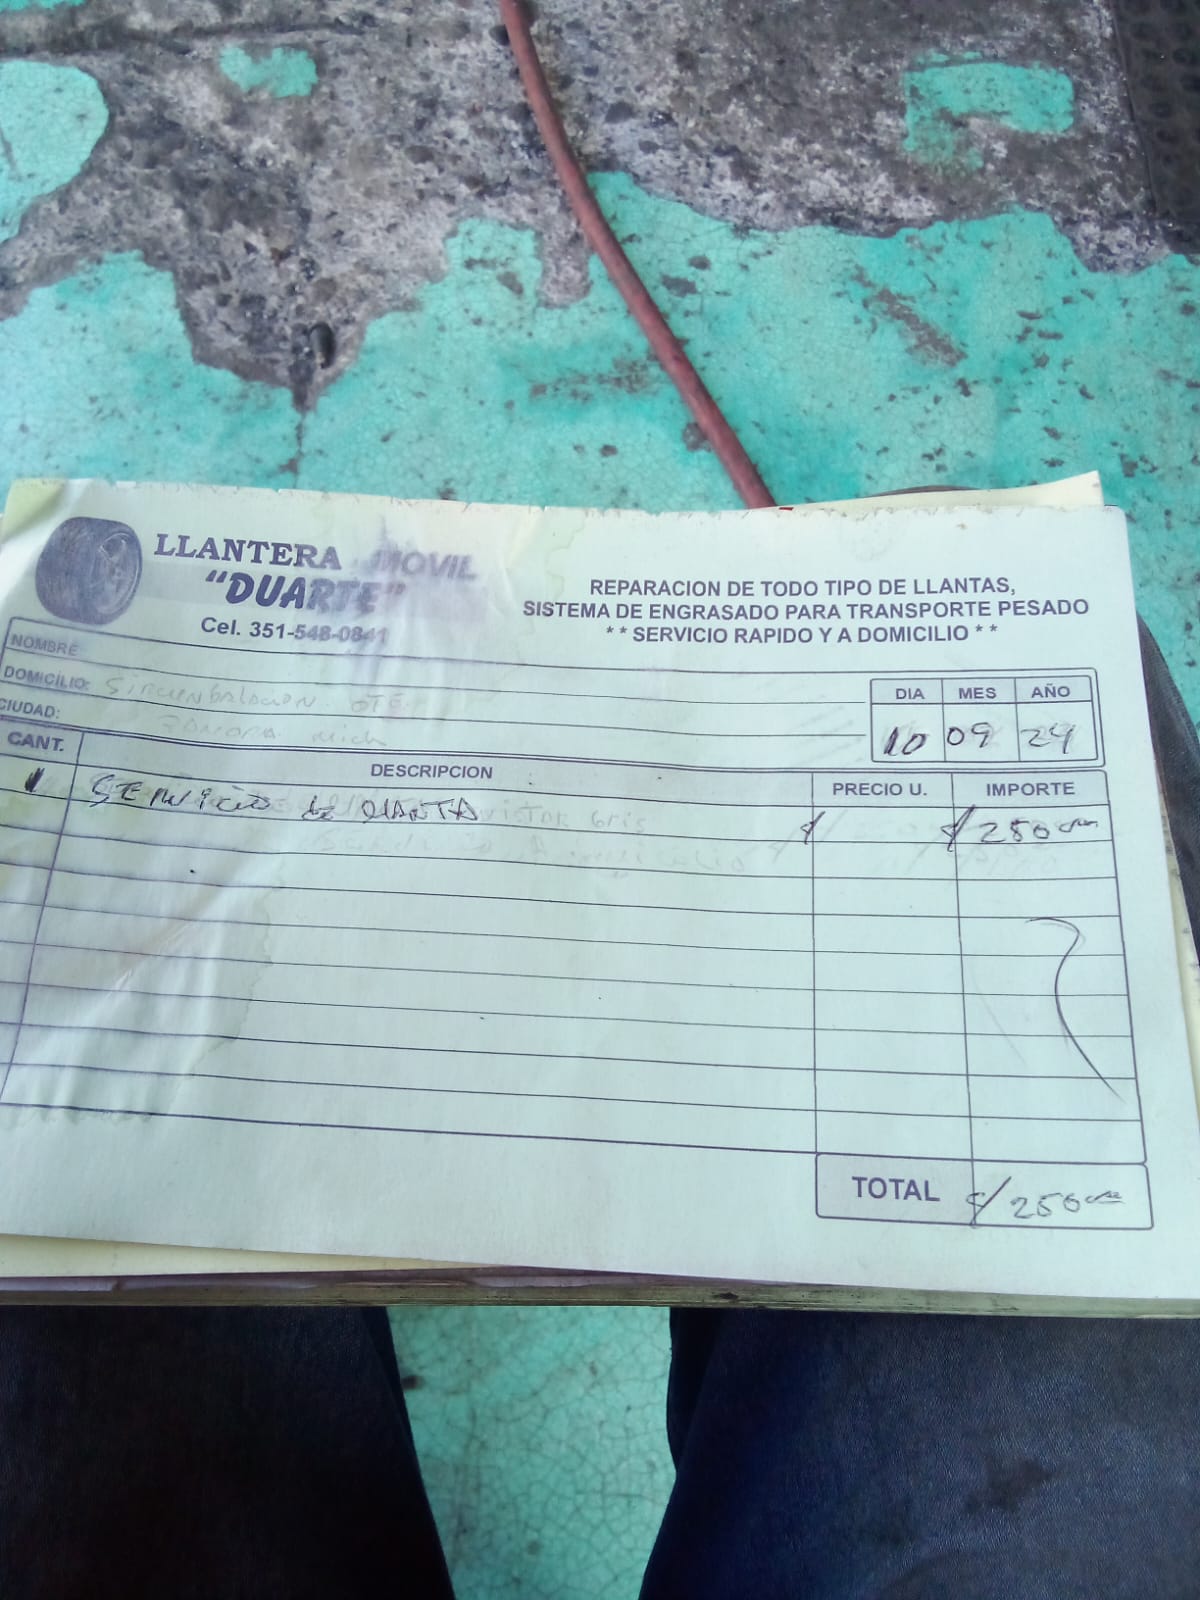 LLANTERA MOVIL
"DUARTE"
Cel. 351-548-0841
REPARACION DE TODO TIPO DE LLANTAS,
SISTEMA DE ENGRASADO PARA TRANSPORTE PESADO
* * SERVICIO RAPIDO Y A DOMICILIO * *
NOMBRE:
DOMICILIO: Sircunbalacion OTE.
CIUDAD: Zamora Mich
DIA MES AÑO
10 09 24
CANT. DESCRIPCION PRECIO U. IMPORTE
1 SERVICIO de LLANTA $ $ 250
TOTAL $ 250